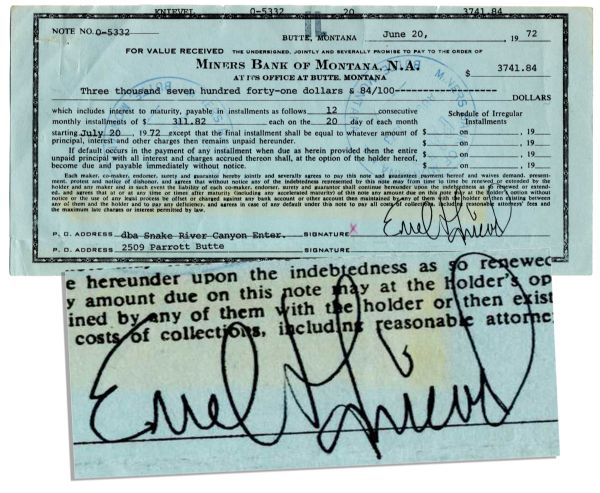 KNIEVEL 0-5332 20 3741.84
IL
NOTE NO. 0-5332 BUTTE, MONTANA June 20, 19 72
FOR VALUE RECEIVED THE UNDERSIGNED, JOINTLY AND SEVERALLY PROMISE TO PAY TO THE ORDER OF
MINERS BANK OF MONTANA, N.A. $ 3741.84
AT ITS OFFICE AT BUTTE, MONTANA
Three thousand seven hundred forty-one dollars & 84/100 DOLLARS
which includes interest to maturity, payable in installments as follows 12 consecutive
monthly installments of $ 311.82 each on the 20 day of each month
starting July 20, 19 72 except that the final installment shall be equal to whatever amount of
principal, interest and other charges then remains unpaid hereunder.
Schedule of Irregular
Installments
$ on , 19
$ on , 19
$ on , 19
$ on , 19
If default occurs in the payment of any installment when due as herein provided then the entire
unpaid principal with all interest and charges accrued thereon shall, at the option of the holder hereof,
become due and payable immediately without notice.
Each maker, co-maker, endorser, surety and guarantor hereto jointly and severally agrees to pay this note and guarantees payment hereof and waives demand, present-
ment, protest and notice of dishonor, and agrees that without notice any of the indebtedness represented by this note may from time to time be renewed or extended by the
holder and any maker and in such event the liability of each co-maker, endorser, surety and guarantor shall continue hereunder upon the indebtedness as so renewed or extend-
ed, and agrees that at or at any time or times after maturity (including any accelerated maturity) of this note any amount due on this note may at the holder's option without
notice or the use of any legal process be offset or charged against any bank account or other account then maintained by any of them with the holder or then existing between
any of them and the holder and agrees in case of any default under this note to pay all costs of collections, including reasonable attorneys' fees and
the maximum late charges or interest permitted by law.
P. O. ADDRESS dba Snake River Canyon Enter. SIGNATURE X Evel Knievel
P. O. ADDRESS 2509 Parrott Butte SIGNATURE
e hereunder upon the indebtedness as so renewed
y amount due on this note may at the holder's op
ined by any of them with the holder or then exist
costs of collections, including reasonable attorne
Evel Knievel